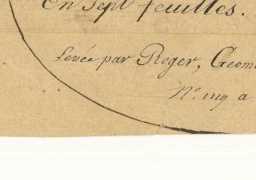 en sept feuilles.
Levée par Roger, Geom